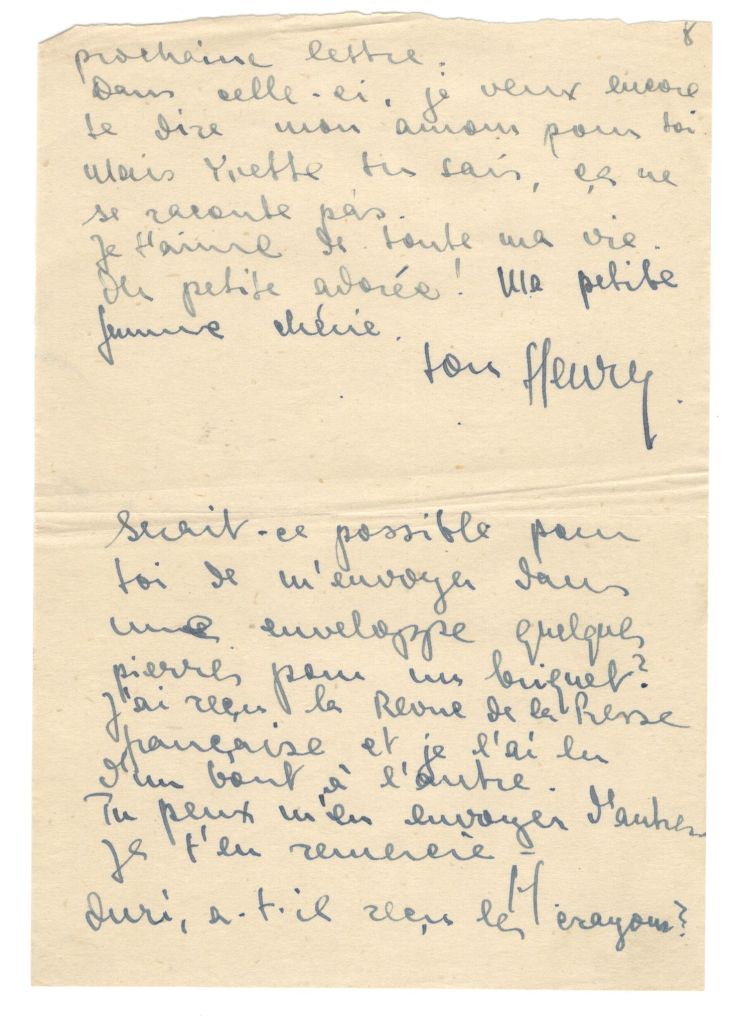 8
prochaine lettre.
Dans celle-ci, je veux encore
te dire mon amour pour toi.
Mais Yvette tu sais, ça ne
se raconte pas.
Je t'aime de toute ma vie.
Ma petite adorée! Ma petite
femme chérie.
ton Henry.
Serait-ce possible pour
toi de m'envoyer dans
une enveloppe quelques
pierres pour un briquet?
J'ai reçu la Revue de la Presse
française et je l'ai lu
d'un bout à l'autre.
Tu peux m'en envoyer d'autres
Je t'en remercie -
H
Duri, a-t-il reçu les crayons?